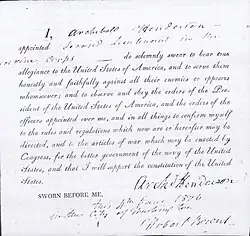 I, Archibald Henderson
appointed Second Lieutenant in the
Marine Corps do solemnly swear to bear true
allegiance to the United States of America, and to serve them
honestly and faithfully against all their enemies or opposers
whomsoever; and to observe and obey the orders of the Pre-
sident of the United States of America, and the orders of the
officers appointed over me, and in all things to conform myself
to the rules and regulations which now are or hereafter may be
directed, and to the articles of war which may be enacted by
Congress, for the better government of the navy of the United
States, and that I will support the constitution of the United
States.
Archd Henderson
SWORN BEFORE ME,
this 4th June 1806
in the City of Washington
Robert Brent